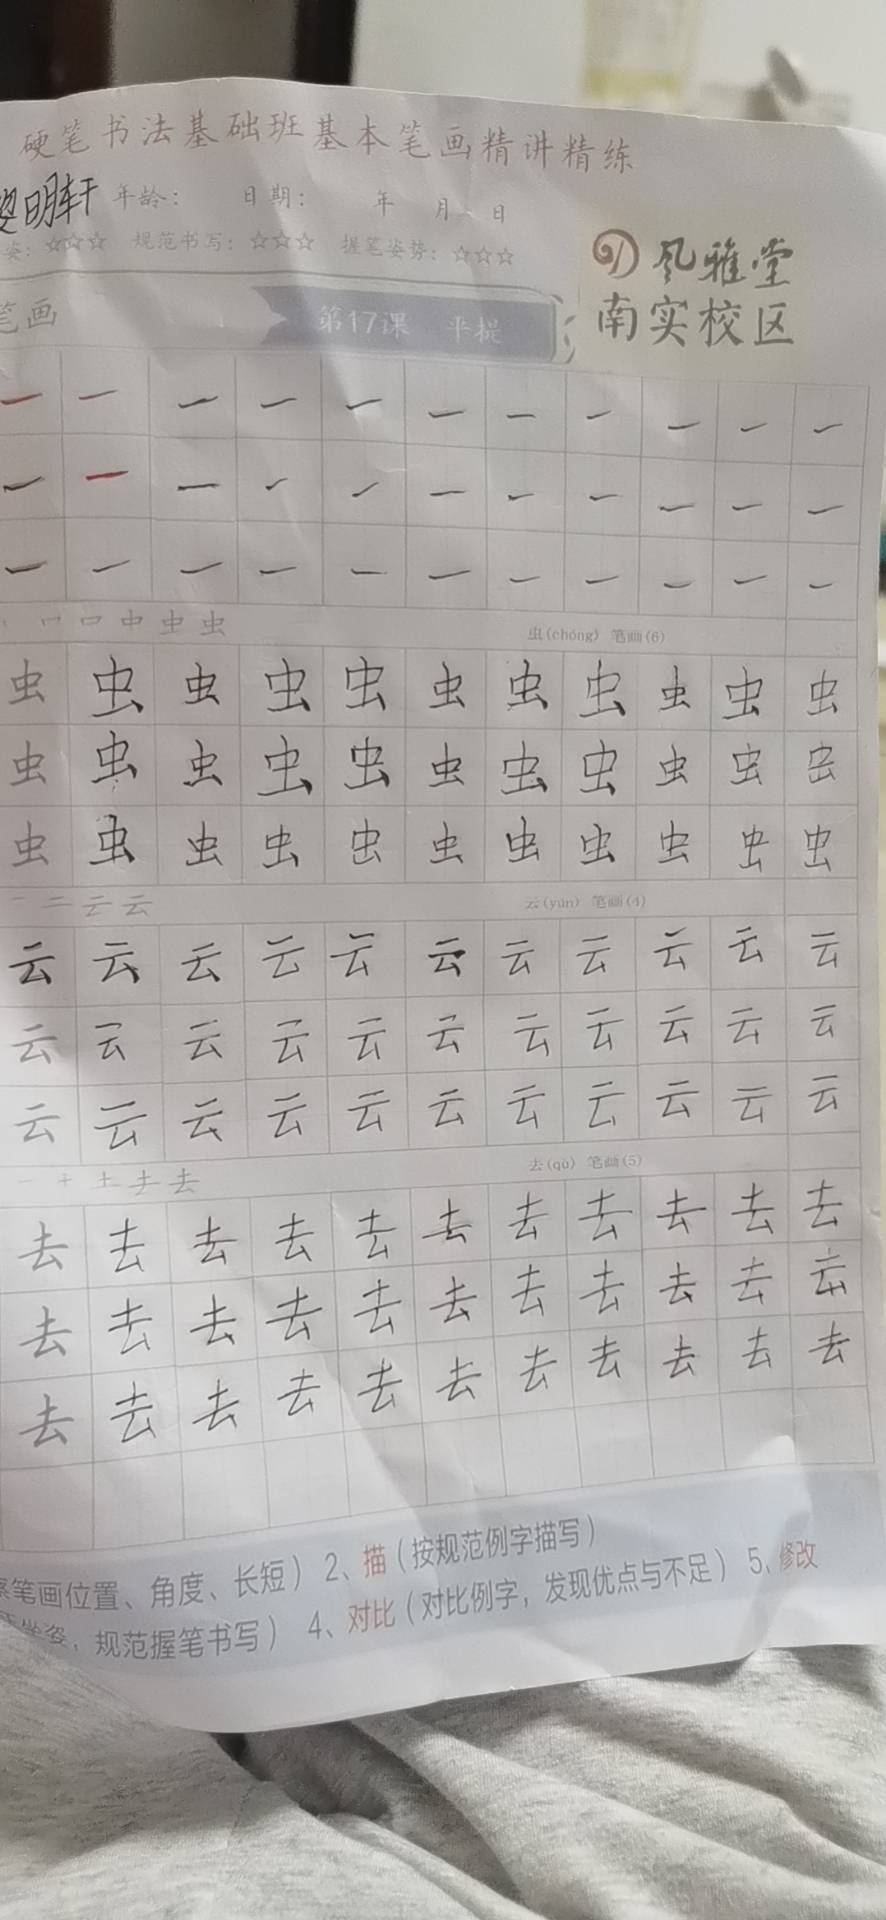 硬笔书法基础班基本笔画精讲精练
明轩 年龄： 日期： 年 月 日
姿：☆☆☆ 规范书写：☆☆☆ 握笔姿势：☆☆☆
风雅堂
南实校区
笔画 第17课 平提
丨 口 口 中 虫 虫 虫(chóng) 笔画(6)
虫 虫 虫 虫 虫 虫 虫 虫 虫 虫 虫
虫 虫 虫 虫 虫 虫 虫 虫 虫 虫 虫
虫 虫 虫 虫 虫 虫 虫 虫 虫 虫 虫
一 二 云 云 云(yún) 笔画(4)
云 云 云 云 云 云 云 云 云 云 云
云 云 云 云 云 云 云 云 云 云 云
云 云 云 云 云 云 云 云 云 云 云
一 十 土 去 去 去(qù) 笔画(5)
去 去 去 去 去 去 去 去 去 去 去
去 去 去 去 去 去 去 去 去 去 去
去 去 去 去 去 去 去 去 去 去 去
笔画位置、角度、长短） 2、描（按规范例字描写）
坐姿，规范握笔书写） 4、对比（对比例字，发现优点与不足） 5、修改